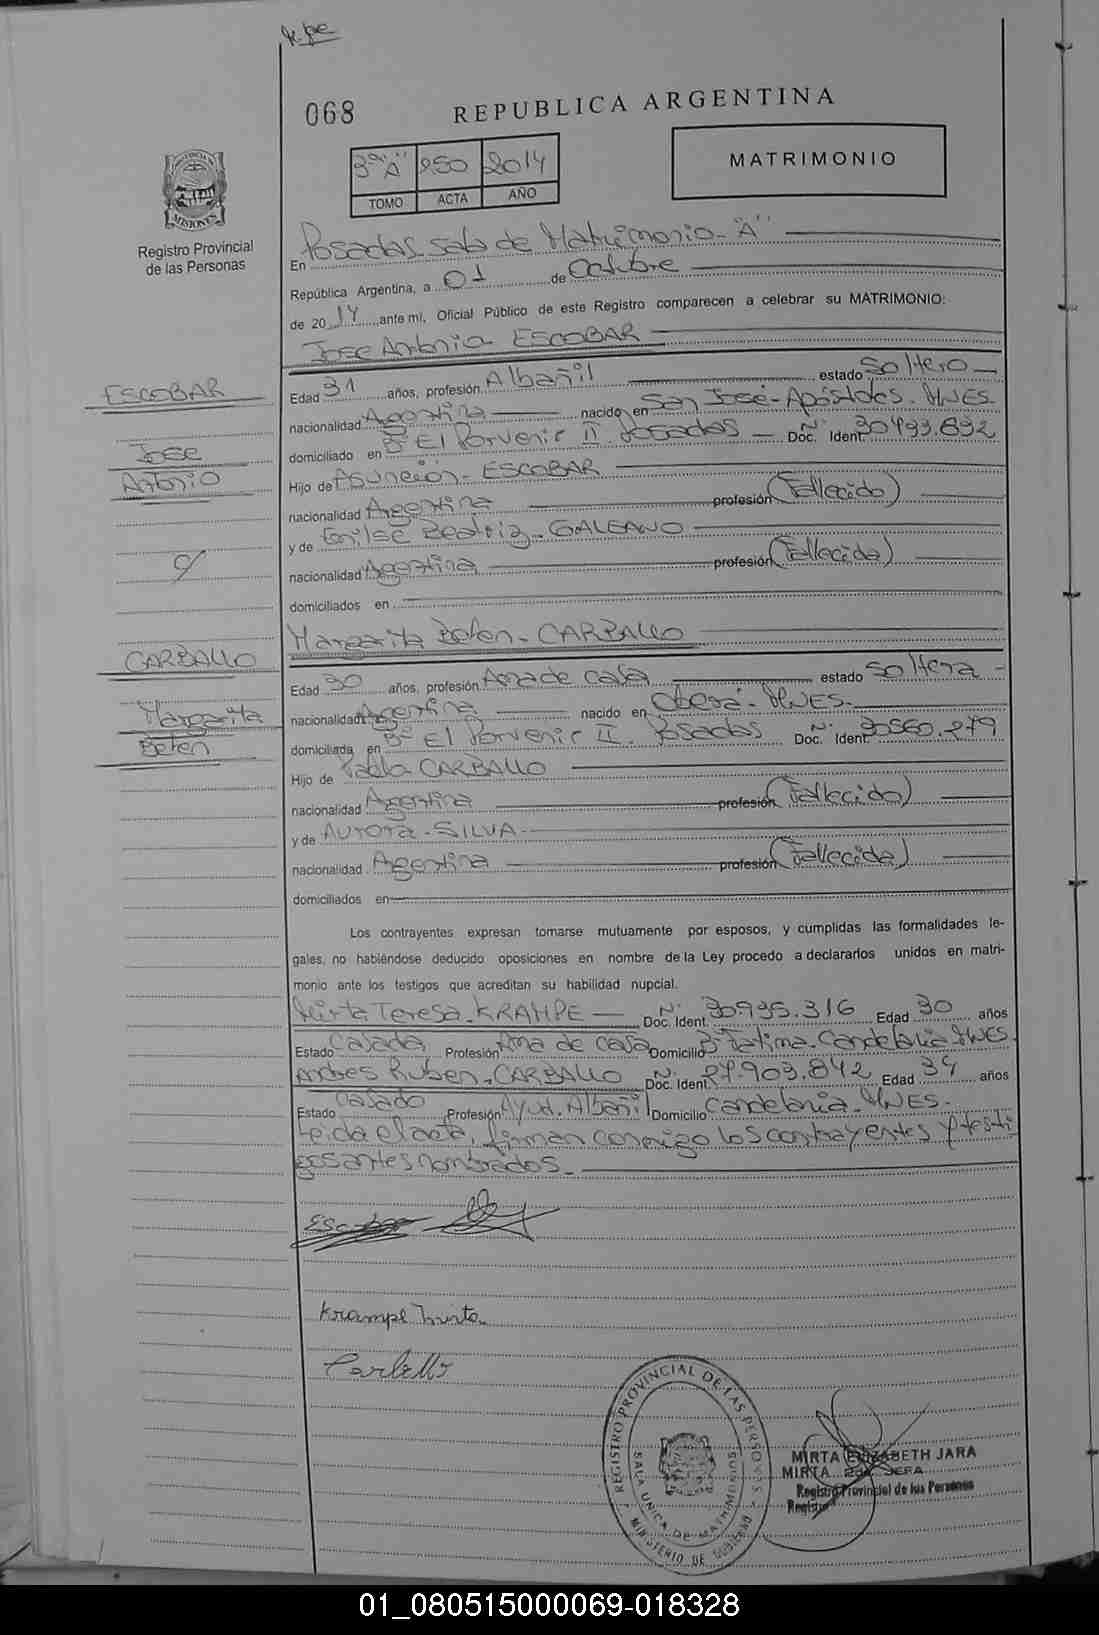 068
REPUBLICA ARGENTINA
MATRIMONIO
3º "A" 250 2014
TOMO ACTA AÑO
PROVINCIA DE MISIONES
Registro Provincial
de las Personas
En Posadas. sala de Matrimonio - "A"
República Argentina, a 01 de Octubre
de 2014 ante mí, Oficial Público de este Registro comparecen a celebrar su MATRIMONIO:
Jose Antonio ESCOBAR
ESCOBAR
Jose
Antonio
c/
CARBALLO
Margarita
Belen
Edad 31 años, profesión Albañil estado Soltero
nacionalidad Argentina nacido en San José - Apóstoles. MNES.
domiciliado en Bº El Porvenir II. Posadas Doc. Nº Ident. 30.493.692
Hijo de Asunción - ESCOBAR
nacionalidad Argentina profesión (Fallecido)
y de Enilse Beatriz - GALEANO
nacionalidad Argentina profesión (Fallecida)
domiciliados en
Margarita Belen - CARBALLO
Edad 30 años, profesión Ama de casa estado Soltera
nacionalidad Argentina nacido en Oberá - MNES.
domiciliada en Bº El Porvenir II. Posadas Doc. Nº Ident. 30560.279
Hijo de Pablo CARBALLO
nacionalidad Argentina profesión (Fallecido)
y de Aurora - SILVA
nacionalidad Argentina profesión (Fallecida)
domiciliados en
Los contrayentes expresan tomarse mutuamente por esposos, y cumplidas las formalidades le-
gales, no habiéndose deducido oposiciones en nombre de la Ley procedo a declararlos unidos en matri-
monio ante los testigos que acreditan su habilidad nupcial.
Mirta Teresa - KRAMPE Doc. Nº Ident. 30.935.316 Edad 30 años
Estado Casada Profesión Ama de casa Domicilio Bº Fatima. Candelaria MNES
Andres Ruben - CARBALLO Doc. Nº Ident. 27.903.842 Edad 34 años
Estado Casado Profesión Ayud. Albañil Domicilio Candelaria - MNES.
Leida el acta, firman conmigo los contrayentes y testi
gos antes nombrados.
Krampe Mirta
Carballo
REGISTRO PROVINCIAL DE LAS PERSONAS
SALA UNICA DE MATRIMONIOS
MINISTERIO DE GOBIERNO
MIRTA ELIZABETH JARA
MIRTA JEFA
Registro Provincial de las Personas
01_080515000069-018328